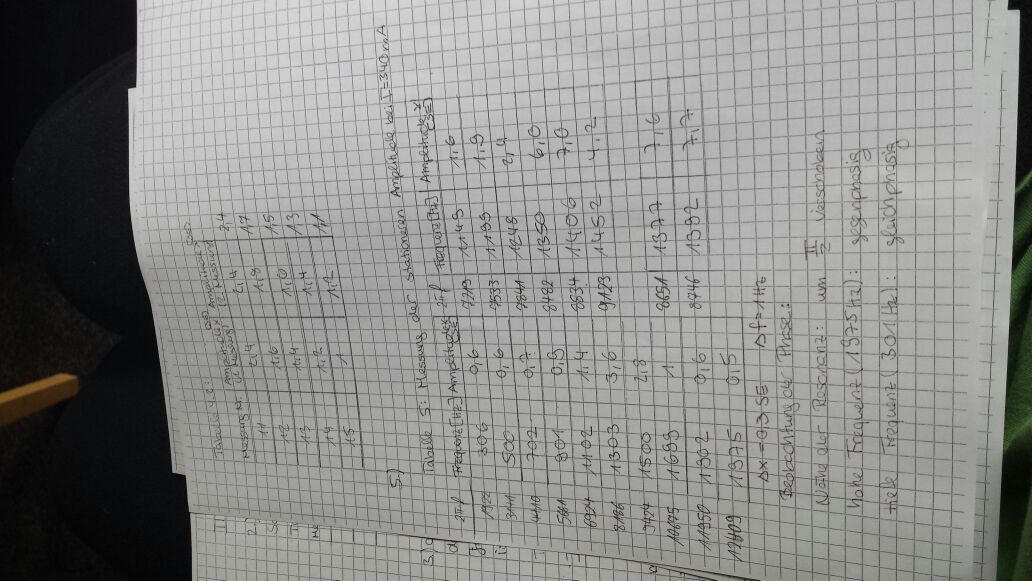 Tabelle 4.2:
Messung Nr. Amplitude x (1. Messung) Amplitude x (2. Messung)
11 2,4 2,4 2,4
12 1,6 1,8 1,7
13 1,4 1,5
14 1,4 1,3
15 1 1,2 1,1
5.)
Tabelle 5: Messung der stationären Amplitude bei I=340mA
2πf Frequenz [Hz] Amplitude x (SE) 2πf Frequenz [Hz] Amplitude x (SE)
306 0,6 1149 1,6
500 0,6 7533 1199 1,9
702 0,7 7841 1248 2,4
901 0,9 1350 6,0
6924 1102 1,4 8834 1406 7,0
8186 1303 3,6 9123 1452 4,2
9424 1500 2,8
10675 1699 1 8651 1377 7,6
11950 1902 0,6 8746 1392 7,7
12409 1975 0,5
Δx=0,3 SE Δf=1Hz
Beobachtung der Phase:
Nähe der Resonanz: um π/2 verschoben
hohe Frequenz (1975Hz): gegenphasig
tiefe Frequenz (301Hz): gleichphasig